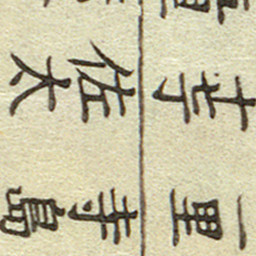 一里
十
寺島
佐太